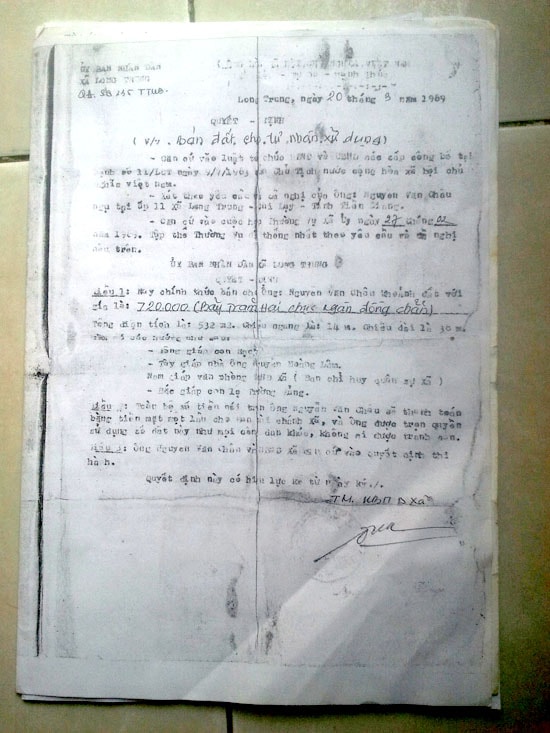 ỦY BAN NHÂN DÂN
XÃ LONG TRUNG
Số 115 TTUB
Long Trung, ngày 20 tháng 3 năm 1989
QUYẾT - ĐỊNH
( V/v. bán đất cho tư nhân xử dụng )
- Căn cứ vào luật tổ chức HĐND và UBND các cấp công bố tại
số 11/LCT ngày 9/7/1983 Chủ Tịch nước cộng hòa xã hội chủ
nghĩa việt Nam.
- Xét theo yêu cầu và đề nghị của Ông: Nguyễn Văn Châu
ngụ tại ấp 11 Xã Long Trung - Cai Lậy - Tỉnh Tiền Giang.
- Căn cứ vào cuộc họp Thường vụ Xã Ủy ngày 27 tháng 02
năm 1989. Tập thể Thường vụ thống nhất theo yêu cầu và đề nghị
nêu trên.
ỦY BAN NHÂN DÂN XÃ LONG TRUNG
QUYẾT - ĐỊNH
Điều 1: Nay chính thức bán cho Ông: Nguyễn Văn Châu đất với
giá là: 720.000 (Bảy trăm Hai chục ngàn đồng chẵn)
Tổng diện tích là: 532 m2. Chiều ngang là: 14 m. Chiều dài là 38 m.
- Đông giáp con Rạch
- Tây giáp nhà Ông Nguyễn Hoàng Lâm.
Nam giáp văn phòng UBND Xã ( Ban chỉ huy quân sự Xã )
- Bắc giáp con lộ
Điều 2: Toàn bộ số tiền nói trên Ông Nguyễn Văn Châu sẽ thanh toán
bằng tiền mặt một lần cho ban tài chính Xã, và Ông được trọn quyền
sử dụng số đất này như mọi công dân khác, không ai được tranh
Điều 3: Ông Nguyễn Văn Châu và UBND Xã căn cứ vào quyết định thi
hành.
Quyết định này có hiệu lực kể từ ngày ký./.
TM. UBND Xã